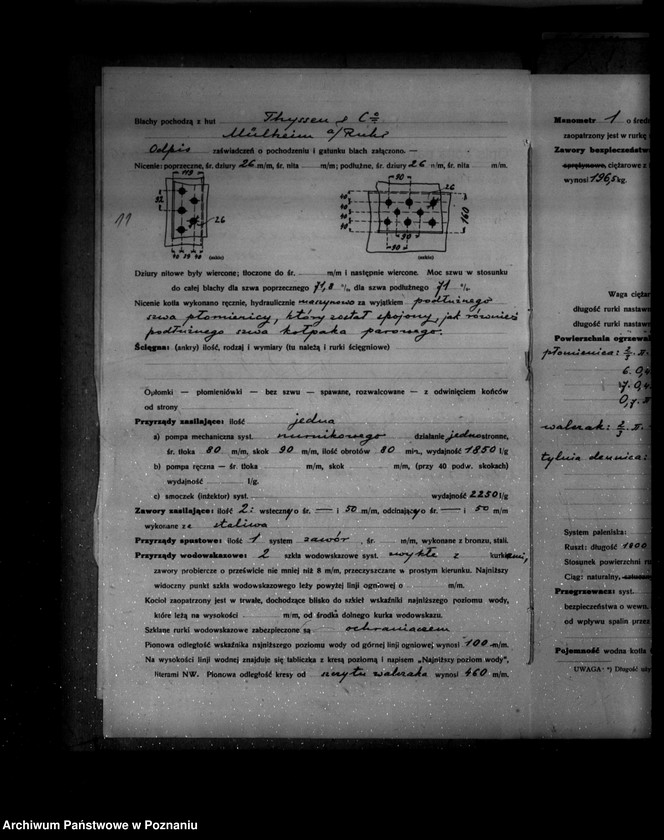 Blachy pochodzą z hut Thyssen & Co
Mülheim a/Ruhr
Odpis zaświadczeń o pochodzeniu i gatunku blach załączono. —
Nicenie: poprzeczne, śr. dziury 26 m/m, śr. nita m/m; podłużne, śr. dziury 26 m/m, śr. nita m/m.
119
26
(szkic)
90
26
160
90
90
(szkic)
11
Dziury nitowe były wiercone; tłoczone do śr. m/m i następnie wiercone. Moc szwu w stosunku
do całej blachy dla szwa poprzecznego 71,8 % dla szwa podłużnego 71 %.
Nicenie kotła wykonano ręcznie, hydraulicznie maszynowo za wyjątkiem podłużnego
szwa płomienicy, który został spojony, jak również
podłużnego szwa kołpaka parowego.
Ścięgna: (ankry) ilość, rodzaj i wymiary (tu należą i rurki ścięgniowe)
Opłomki — płomieniówki — bez szwu — spawane, rozwalcowane — z odwinięciem końców
od strony
Przyrządy zasilające: ilość jedna
a) pompa mechaniczna syst. nurnikowego działanie jednostronne,
śr. tłoka 80 m/m, skok 90 m/m, ilość obrotów 80 min., wydajność 1850 l/g
b) pompa ręczna — śr tłoka m/m, skok m/m, (przy 40 podw. skokach)
wydajność l/g.
c) smoczek (inżektor) syst. wydajność 2250 l/g
Zawory zasilające: ilość 2: wsteczny o śr. — i 50 m/m, odcinający o śr. — i 50 m/m
wykonane z staliwa
Przyrządy spustowe: ilość 1 system zawór, śr. m/m, wykonane z bronzu, stali.
Przyrządy wodowskazowe: 2 szkła wodowskazowe syst. zwykłe z kurkami,
zawory probiercze o prześwicie nie mniej niż 8 m/m, przeczyszczane w prostym kierunku. Najniższy
widoczny punkt szkła wodowskazowego leży powyżej linji ogniowej o m/m.
Kocioł zaopatrzony jest w trwałe, dochodzące blisko do szkieł wskaźniki najniższego poziomu wody,
które leżą na wysokości m/m, od środka dolnego kurka wodowskazu.
Szklane rurki wodowskazowe zabezpieczone są ochraniaczem
Pionowa odległość wskaźnika najniższego poziomu wody od górnej linji ogniowej wynosi 100 m/m.
Na wysokości linji wodnej znajduje się tabliczka z kresą poziomą i napisem „Najniższy poziom wody”,
literami NW. Pionowa odległość kresy od szczytu walczaka wynosi 460 m/m.
Manometr 1 o śred
zaopatrzony jest w rurkę
Zawory bezpieczeństw
sprężynowe, ciężarowe z
wynosi 196,5 kg.
Waga cięża
długość rurki nastaw
długość rurki nastaw
Powierzchnia ogrzewa
płomienica:
walczak:
tylnia dennica:
System paleniska:
Ruszt: długość 1800
Stosunek powierzchni ru
Ciąg: naturalny,
Przegrzewacz: syst.
bezpieczeństwa o wewn.
od wpływu spalin przez
Pojemność wodna kotła
UWAGA: *) Długość
Archiwum Państwowe w Poznaniu